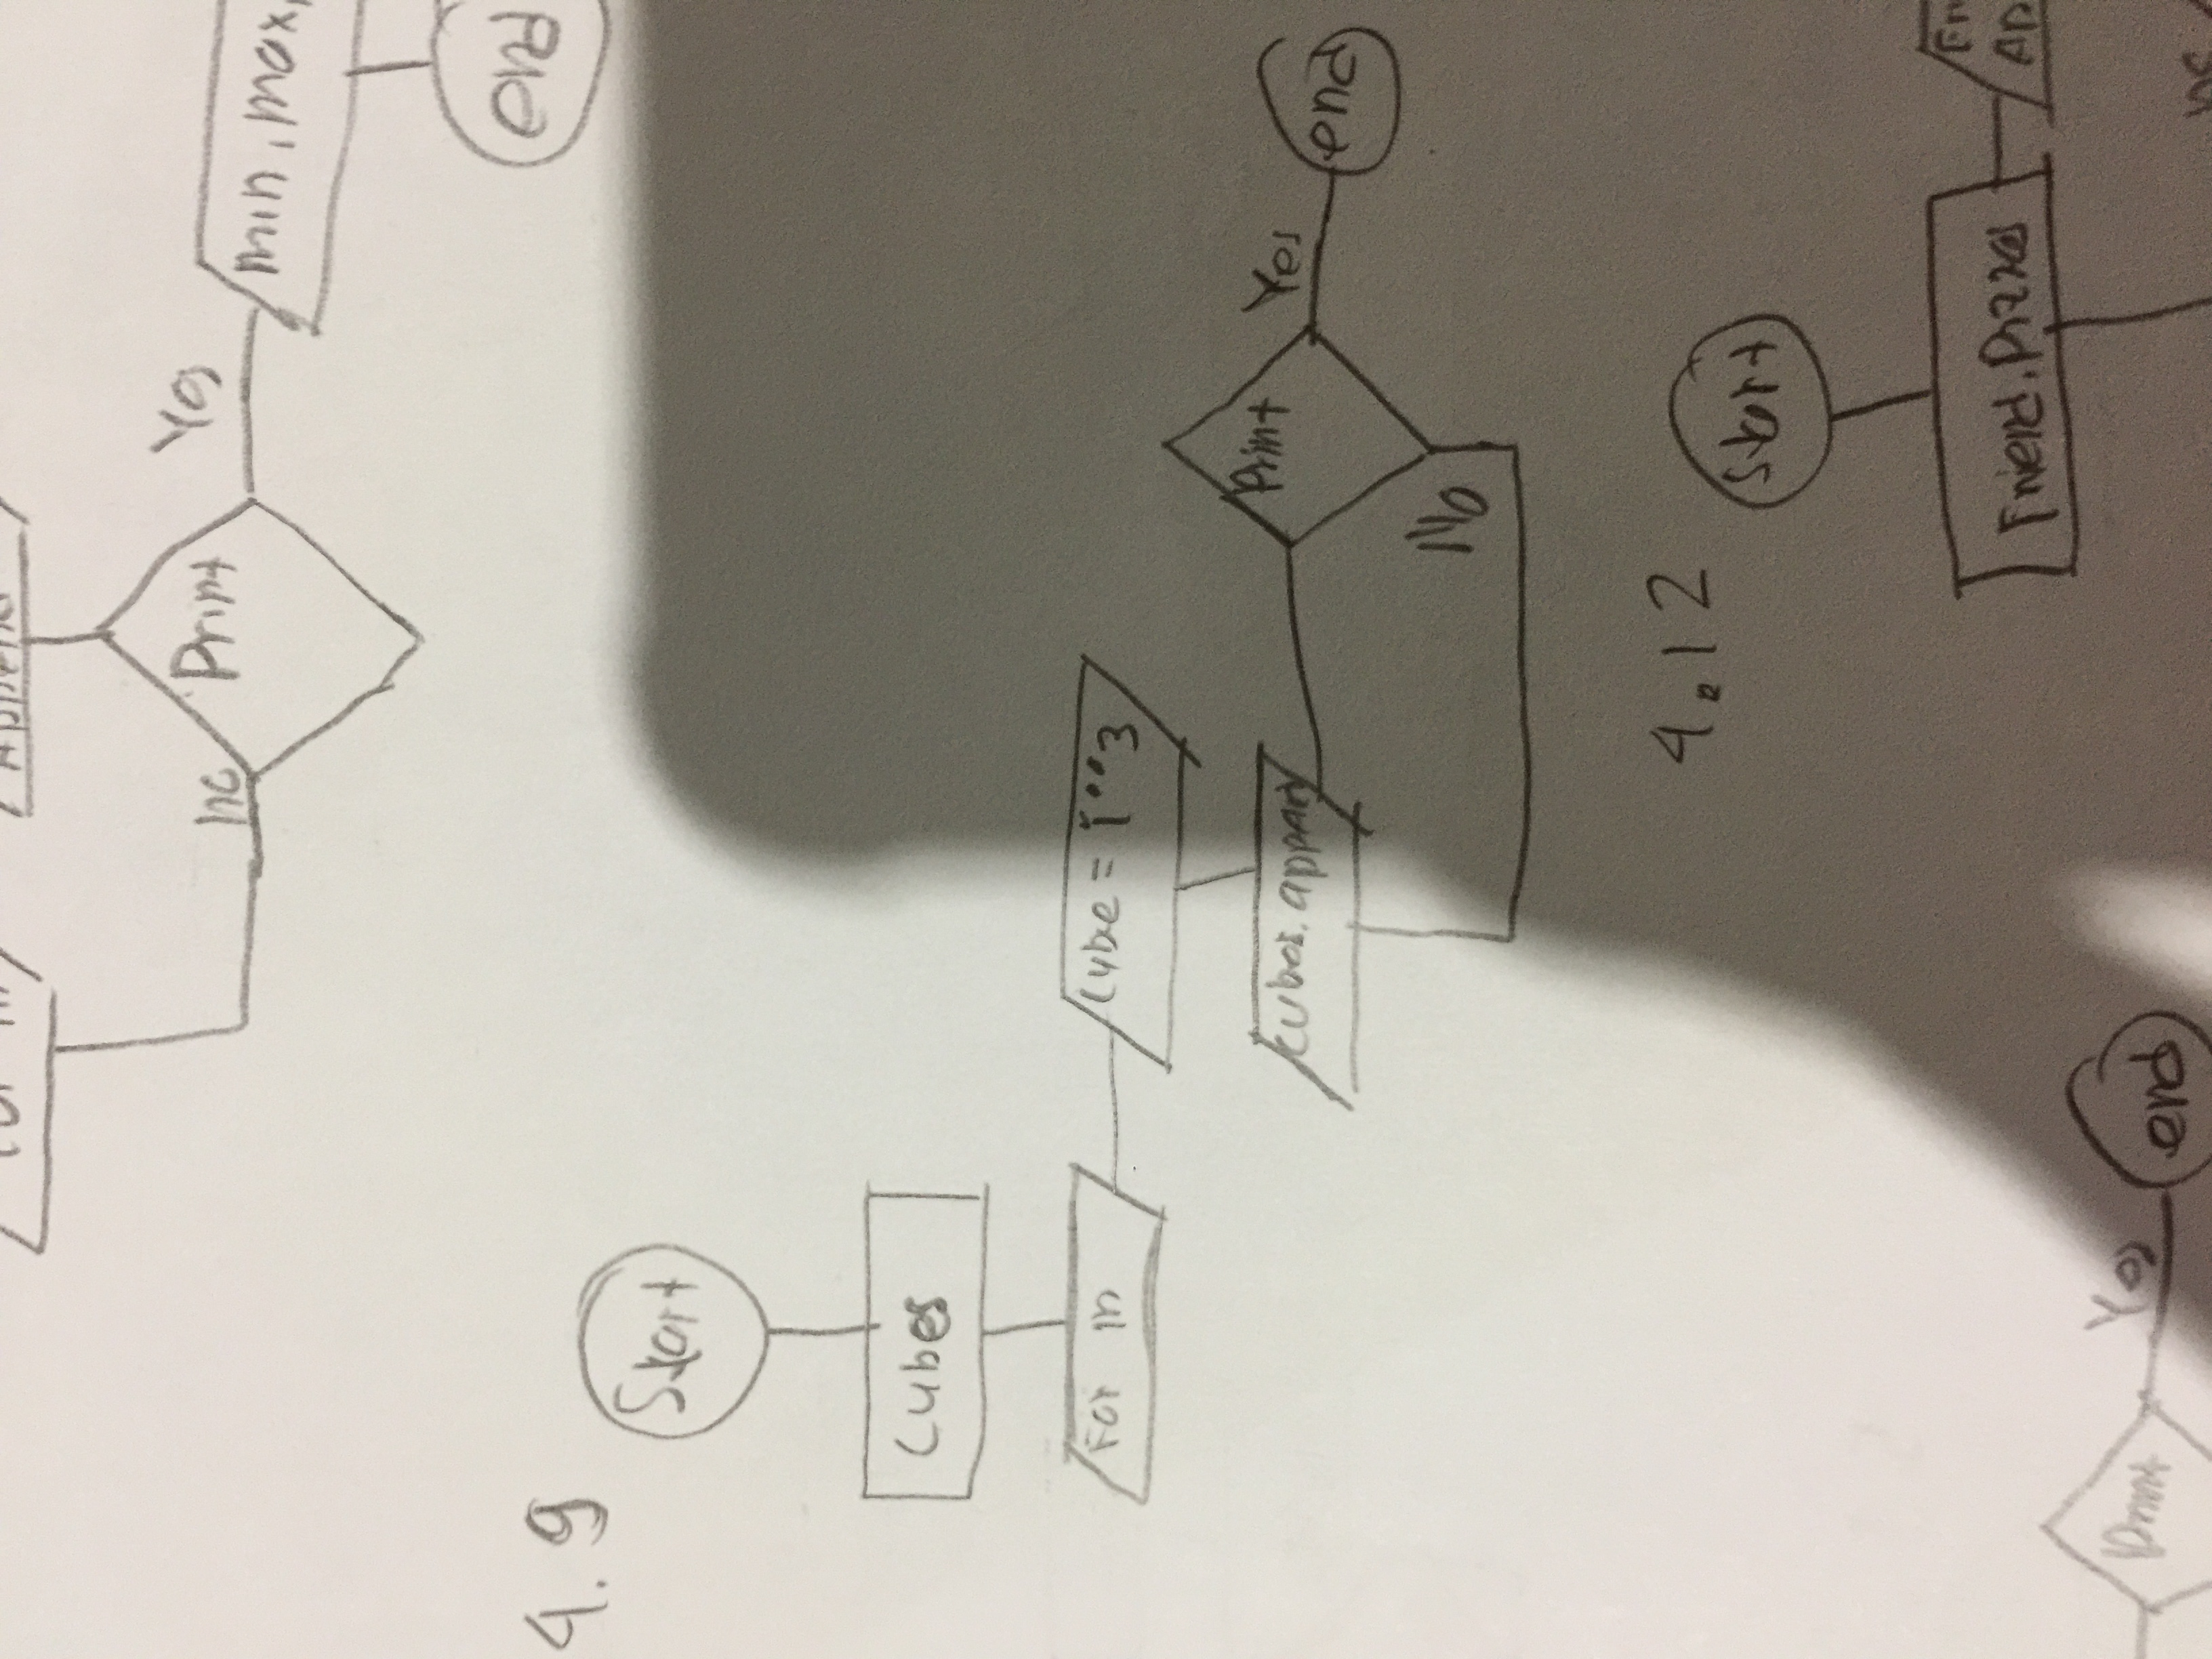 Append
Print
no
Yes
min, max,
end
4.9
Start
Cubes
For in
Cube = i**3
Cubes.appen
Print
Yes
end
No
4.12
Start
Friend.Pizzas
Print
Yes
end